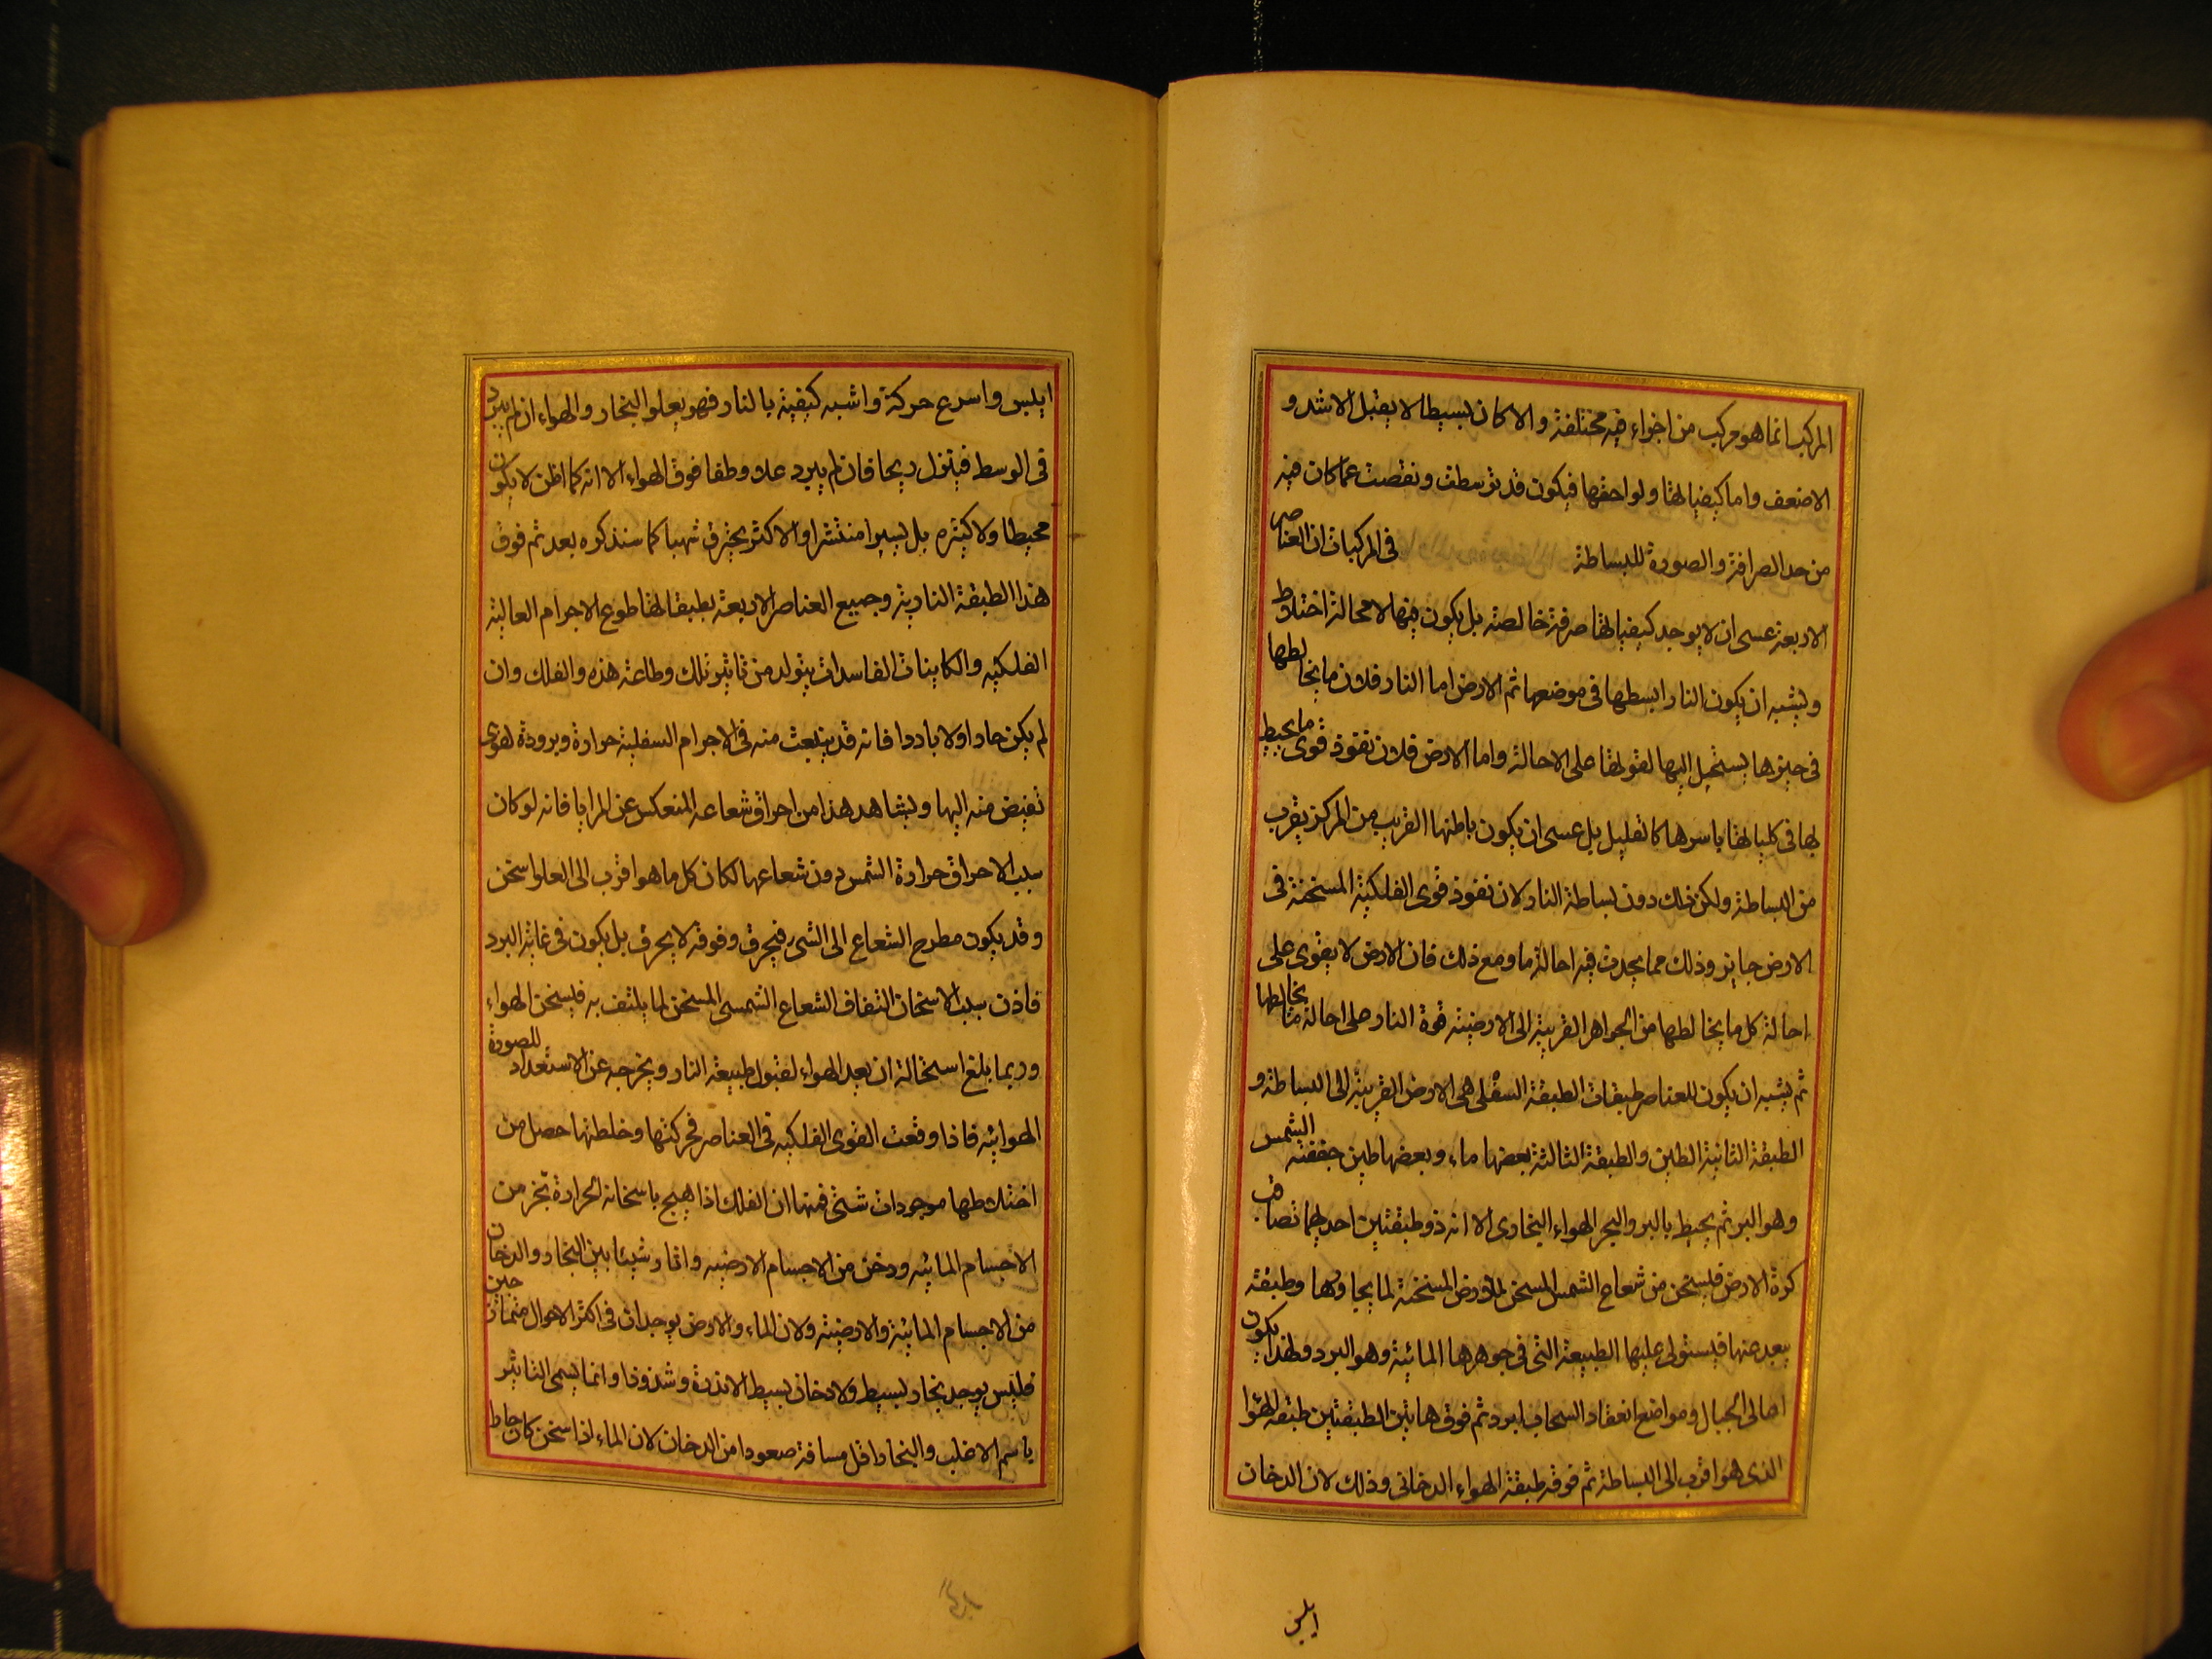 المركب انما هو مركب من اجزاء فيه مختلفة والا كان بسيطا لا يقبل الاشد و
الاضعف واما كيفياتها ولواحقها فيكون قد توسطت ونقصت عما كان فيه
من حد الصرافة والصورة للبساطة في المركبات ان العناصر
الاربعة عسى ان لا يوجد كيفياتها صرفة خالصة بل يكون فيها لا محالة اختلاط
ويشبه ان يكون النار ابسطها في موضعها ثم الارض اما النار فلان ما يخالطها
في حيزها يستحيل اليها لقوتها على الاحالة واما الارض فلان نفوذ قوى ما يحيط
بها في كلياتها باسرها كالقليل بل عسى ان يكون باطنها القريب من المركز يقرب
من البساطة ولكن ذلك دون بساطة النار لان نفوذ قوى الفلكية المسخنة في
الارض جايز وذلك مما يحدث فيه احالة ما ومع ذلك فان الارض لا يقوى على
احالة كل ما يخالطها من الجواهر القريبة الى الارضية قوة النار على احالة ما يخالطها
ثم يشبه ان يكون للعناصر طبقات الطبقة السفلى هى الارض القريبة الى البساطة و
الطبقة الثانية الطين والطبقة الثالثة بعضها ماء وبعضها طين جففته الشمس
وهو البر ثم يحيط بالبر والبحر الهواء البخارى الا انه ذو طبقتين احديهما تصاقب
كرة الارض فيسخن من شعاع الشمس المسخن للارض المسخنة لما يجاورها وطبقة
يبعد عنها فيستولى عليها الطبيعة التى فى جوهرها المائية وهو البرد ولهذا يكون
اعالى الجبال ومواضع انعقاد السحاب ابرد ثم فوق هاتين الطبقتين طبقة الهوا
الذى هو اقرب الى البساطة ثم فوقه طبقة الهواء الدخانى وذلك لان الدخان
ايلبس
ايلبس واسرع حركة واشبه كيفية بالنار فهو يعلو البخار والهواء ان لم يبرد
فى الوسط فينزل ريحا فان لم يبرد علا وطفا فوق الهواء الا انه كما اظن لا يكون
محيطا ولا كثيره بل يسيرا منتشرا والاكثر يحترق شهبا كما سنذكره بعد ثم فوق
هذا الطبقة النارية وجميع العناصر الاربعة بطبقاتها طوع الاجرام العالية
الفلكيه والكاينات الفاسدات يتولد من تاثير تلك وطاعة هذه والفلك وان
لم يكن حارا ولا باردا فانه قد ينبعث منه فى الاجرام السفلية حرارة وبرودة لقوى
تفيض منه اليها ويشاهد هذا من احراق شعاعه المنعكس عن المرايا فانه لو كان
سبب الاحراق حرارة الشمس دون شعاعها لكان كل ما هو اقرب الى العلو اسخن
وقد يكون مطرح الشعاع الى الشى فيحرق وفوقه لا يحرق بل يكون فى غاية البرد
فاذن سبب الاسخان التفاف الشعاع الشمسى المسخن لما يلتف به فيسخن الهواء
وربما بلغ استحالة ان يعد الهواء لقبول طبيعة النار ويخرجه عن الاستعداد للصورة
الهوائيه فاذا وقعت القوى الفلكيه فى العناصر فحركتها وخلطتها حصل من
اختلاطها موجودات شتى فمنها ان الفلك اذا هيج باسخانه الحرارة بخر من
الاجسام المائيه ودخن من الاجسام الارضيه واثار شيئا بين البخار والدخان
من الاجسام المائية والارضية ولان الماء والارض يوجدان فى اكثر الاحوال متمازجين
فليس يوجد بخار بسيط ولا دخان بسيط الا ندرة وشذوذا وانما يسمى التاثير
باسم الاغلب والبخار اقل مسافة صعودا من الدخان لان الماء اذا سخن كان حارا